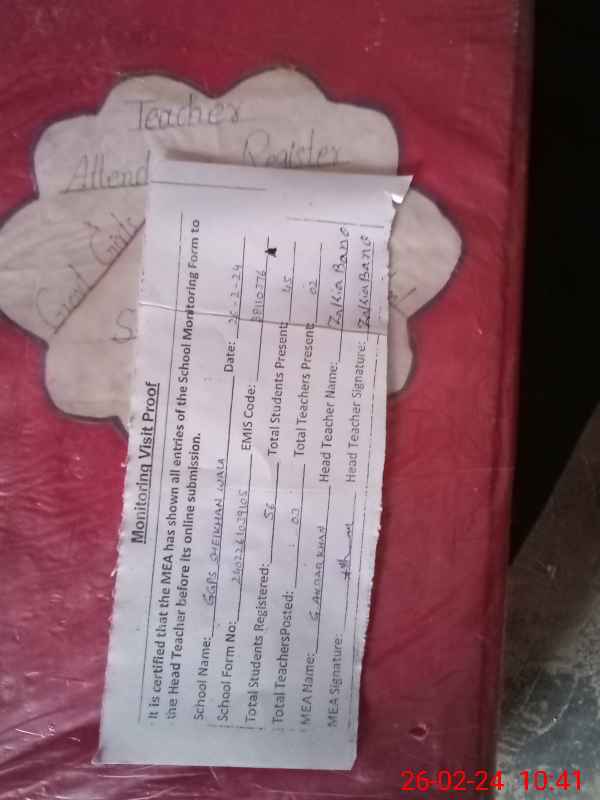 Teacher
Attend Register
Girls
S
Monitoring Visit Proof
It is certified that the MEA has shown all entries of the School Monitoring Form to
the Head Teacher before its online submission.
School Name: GGPS SHEIKHAN WALA
School Form No: Date: 26-2-24
Total Students Registered: 56 EMIS Code: 38110776
Total TeachersPosted: 03 Total Students Present: 45
MEA Name: Total Teachers Present: 02
Head Teacher Name: Zakia Bano
MEA Signature: Head Teacher Signature: Zakia Bano
26-02-24 10:41